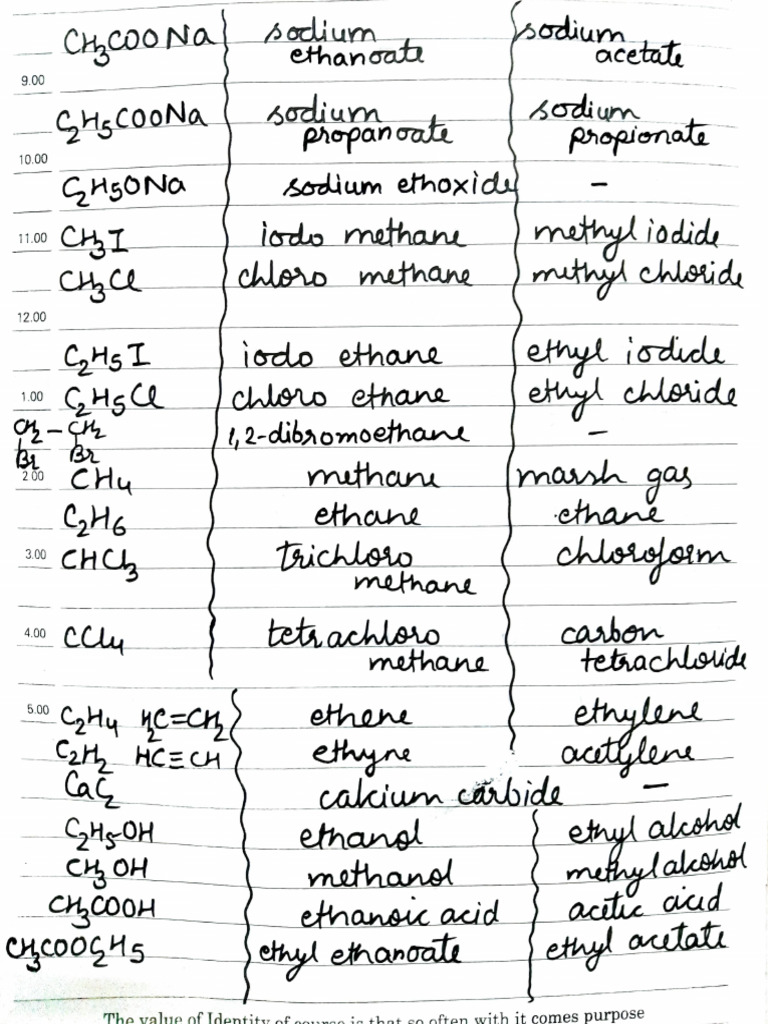 CH₃COONa sodium ethanoate sodium acetate
9.00
C₂H₅COONa sodium propanoate sodium propionate
10.00
C₂H₅ONa sodium ethoxide –
11.00 CH₃I iodo methane methyl iodide
CH₃Cl chloro methane methyl chloride
12.00
C₂H₅I iodo ethane ethyl iodide
1.00 C₂H₅Cl chloro ethane ethyl chloride
CH₂ – CH₂ 1,2-dibromoethane –
Br Br
2.00 CH₄ methane marsh gas
C₂H₆ ethane ethane
3.00 CHCl₃ trichloro methane chloroform
4.00 CCl₄ tetrachloro methane carbon tetrachloride
5.00 C₂H₄ H₂C=CH₂ ethene ethylene
C₂H₂ HC≡CH ethyne acetylene
CaC₂ calcium carbide –
C₂H₅-OH ethanol ethyl alcohol
CH₃OH methanol methyl alcohol
CH₃COOH ethanoic acid acetic acid
CH₃COOC₂H₅ ethyl ethanoate ethyl acetate
The value of Identity of course is that so often with it comes purpose